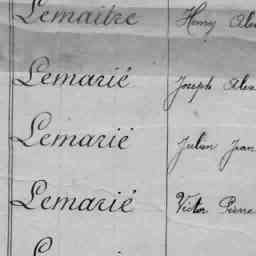 Lemaitre Henry
Lemarié Joseph Alex
Lemarié Julien Jean
Lemarié Victor Pierre